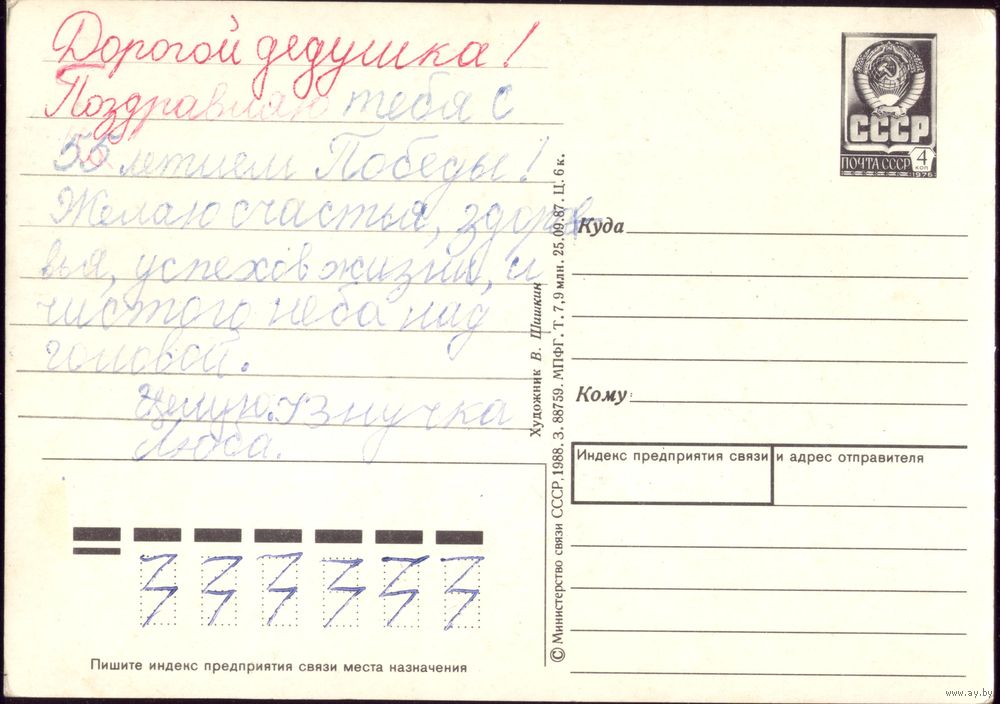 Дорогой дедушка!
Поздравляю тебя с
55 летием Победы!
Желаю счастья, здоров-
вья, успехов жизни, и
чистого неба над
головой.
Целую. Внучка
Люба.
Пишите индекс предприятия связи места назначения
Художник В. Шишкин
© Министерство связи СССР, 1988. З. 88759. МПФГ. Т. 7,9 млн. 25.09.87. Ц. 6 к.
СССР
ПОЧТА СССР
4
КОП
1976
Куда
Кому
Индекс предприятия связи и адрес отправителя
www.ay.by